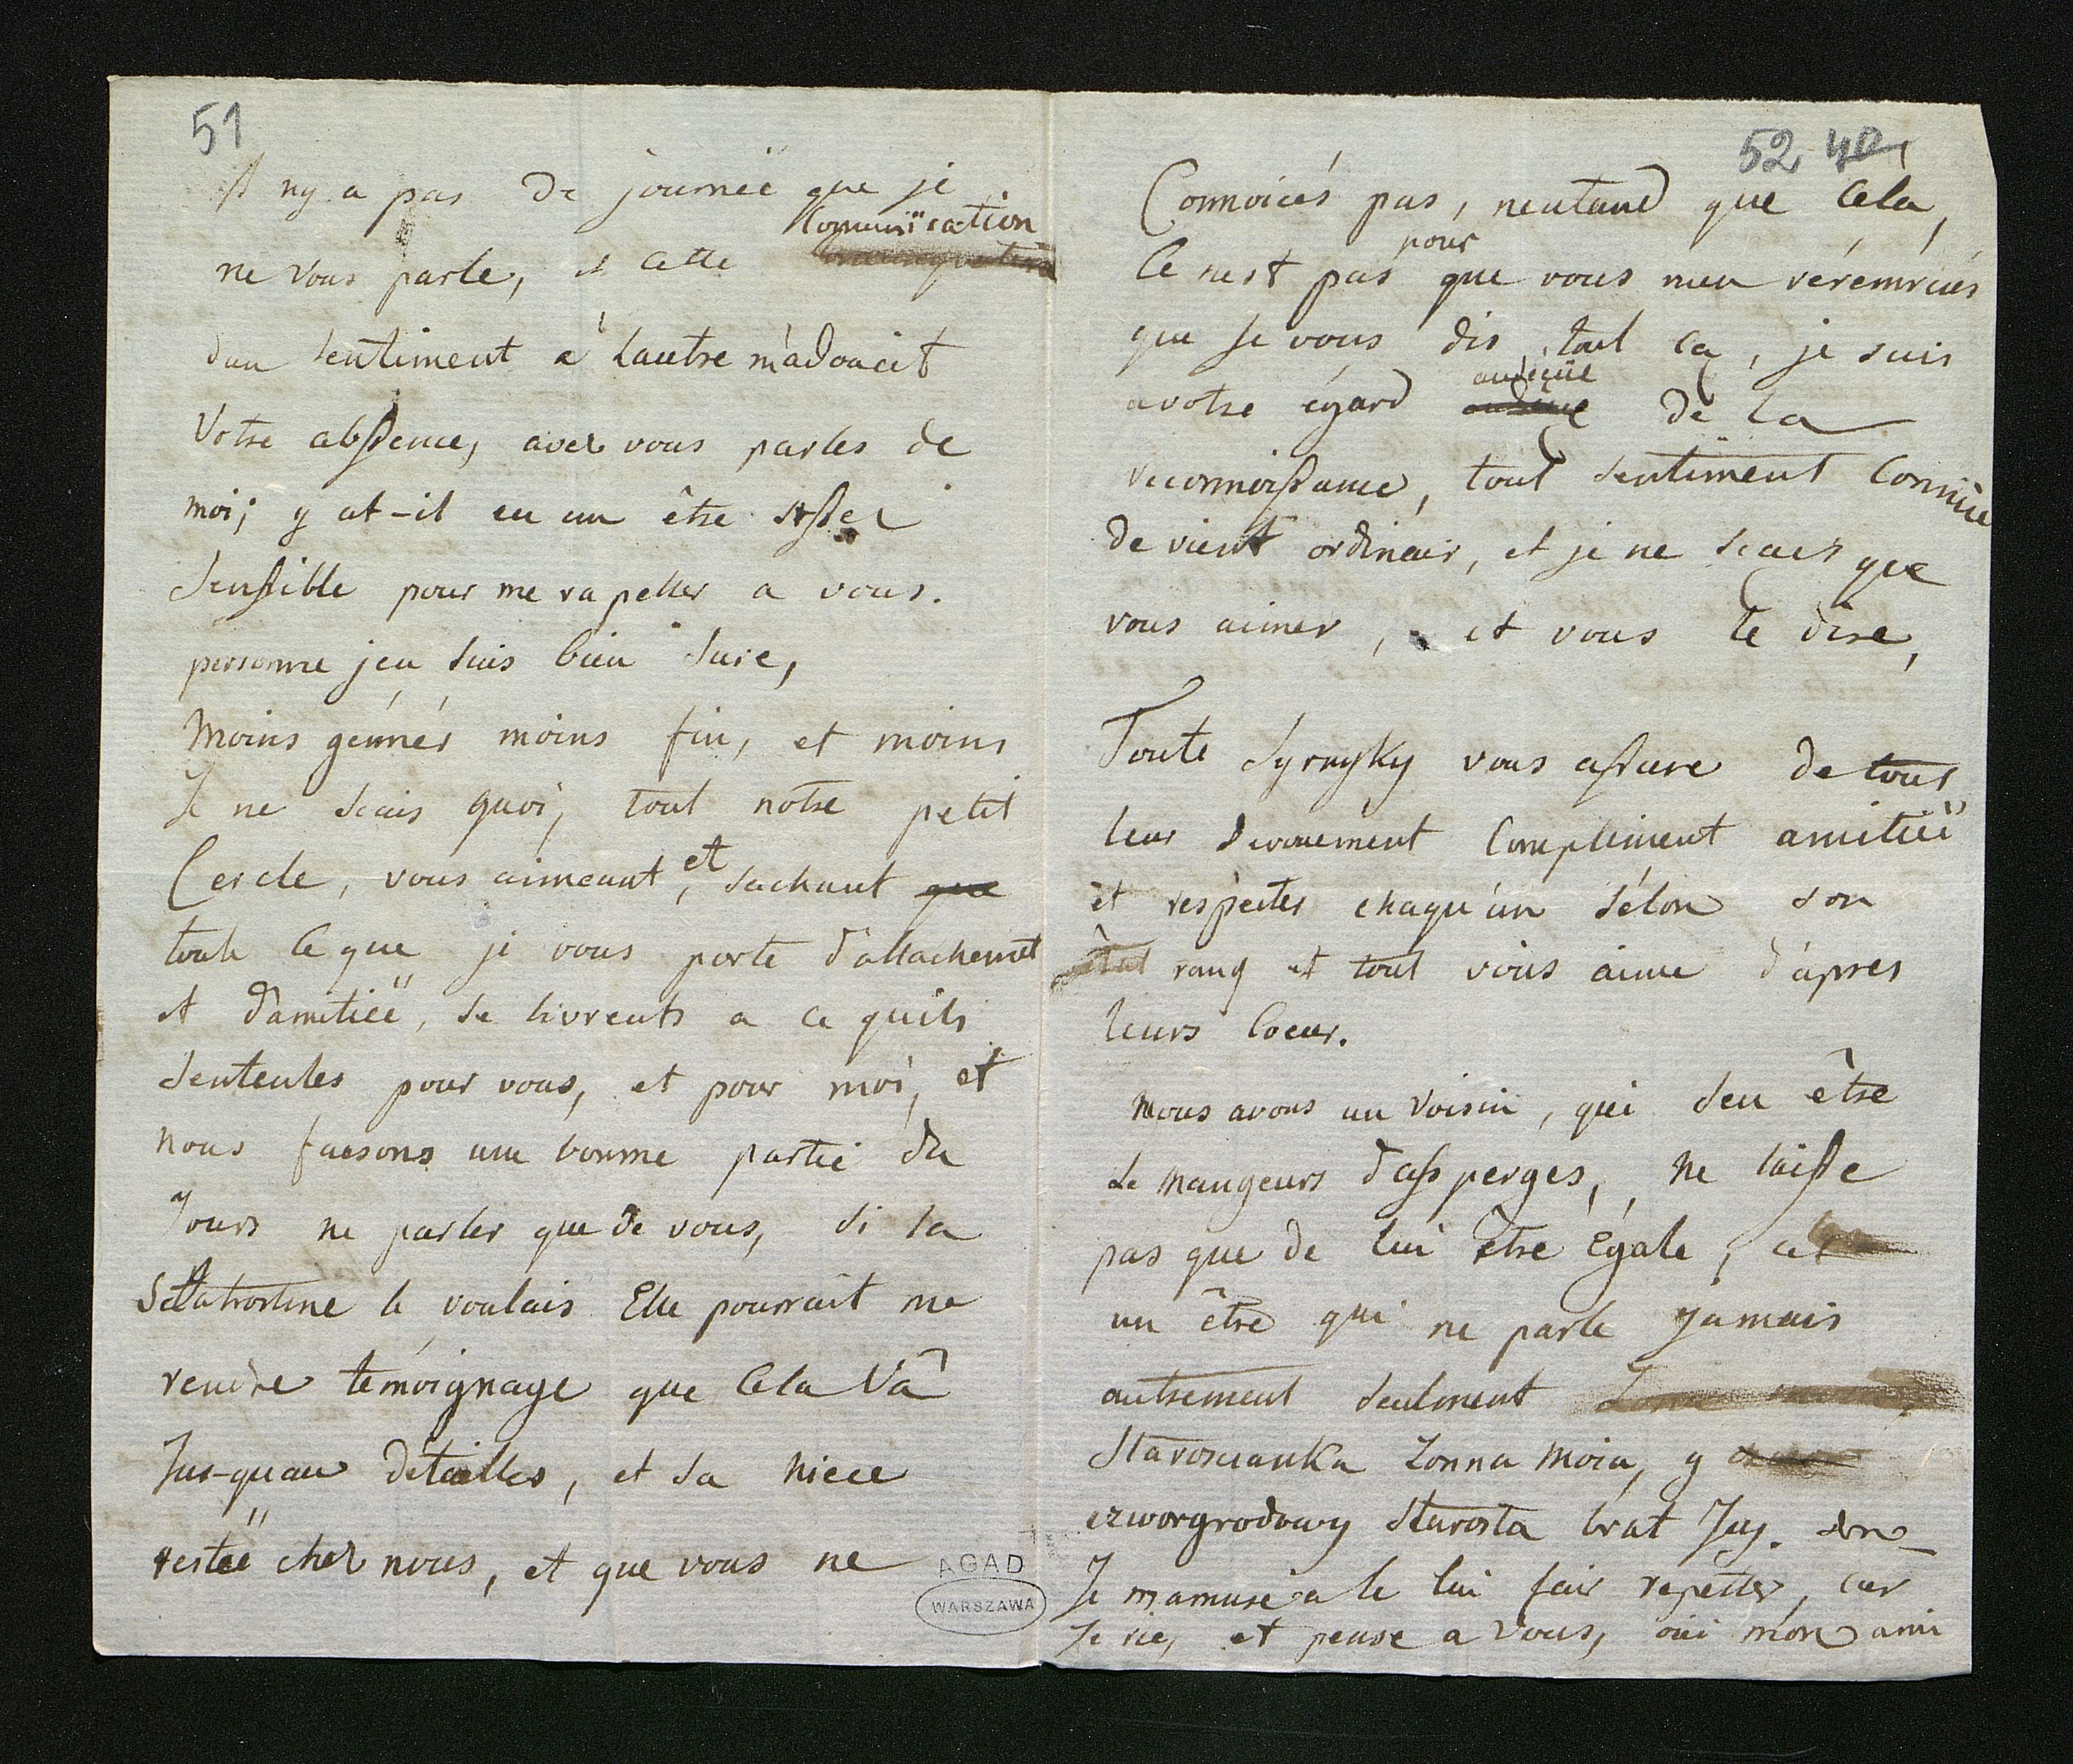 51
Il ny a pas de journéé que je
ne vous parle, et cette Comunïcation
dun sentiment a lautre m'adoucit
Votre abssence, avez vous parles de
moi; y at-il eu un être assez
senssible pour me rapeller a vous.
personne jen suis bien sure,
Moins génnés moins fin, et moins
Je ne scais quoi, tout notre petit
Cercle, vous aimeant, et sachant que
toute ce que je vous porte d'attachemet
et d'amitiéé, se livrents a ce quils
sententes pour vous, et pour moi, et
nous faesons une bonne partie du
Jours ne parler que de vous, si la
le voulais Elle pourrait me
rendre témoignage que Cela Vâ
Jus-quau détailles, et sa niece
restéé chez nous, et que vous ne
AGAD
WARSZAWA
52 40
Connoicés pas, neutand que Cela,
Ce nest pas pour que vous men rérémrciés
que Je vous dis, tout ca, je suis
a votre égard audeçüe de la
reconnoissance, tout sentiment Connüe
devient ordinair, et je ne scaes que
vous aimer, et vous le dire,
Toute vous assure de tous
leur devouement Compliment amitiéé
et respectes chaqu'un sélon son
état rang et tout vous aime d'apres
leurs Coeur.
Nous avons un Voisin, qui sen être
Le mangeurs d'assperges, ne laisse
pas que de lui être Egale, cet
un être qui ne parle Jamais
autrement seulment
Staroscianka Zonna Moia, y
czworgrodowy Starosta brat Jey.
Je mamuse a le lui fair repetter, car
Je rie, et pense a Vous, oui mon ami